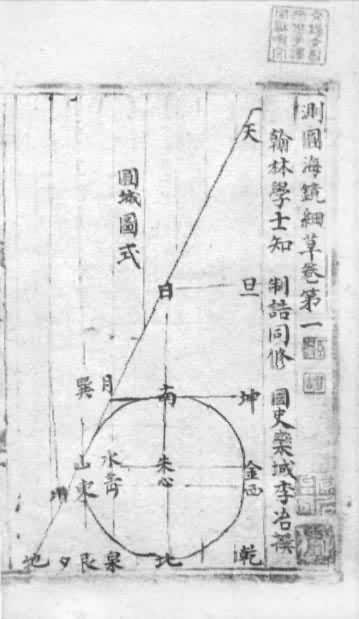 測圓海鏡細草卷第一
翰林學士知 制誥同修 國史欒城李冶撰
圓城圖式
天
日 旦
巽 月 南 坤
山 朱 金
東 心 西
川
地 夕 艮 泉 北 乾